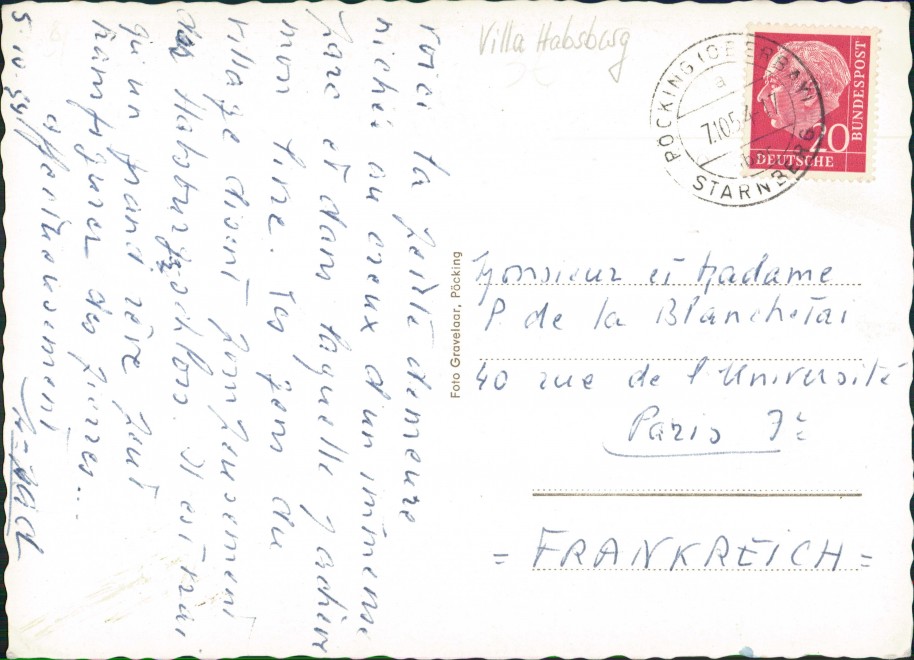 Villa Habsburg
PÖCKING (OBERBAY)
a
7.10.54
STARNBERG
20
BUNDESPOST
DEUTSCHE
Voici la petite demeure
nichée au creux d'un immense
parc et dans laquelle j'achève
mon livre. Les gens du
village disent pompeusement
das Habsburgschloss. Il est vrai
qu'un grand rêve peut
transfigurer des pierres...
affectueusement
5.10.54
Foto Gravelaar, Pöcking
Monsieur et Madame
P. de la Blanchetai
40 rue de l'Université
Paris 7e
= FRANKREICH =